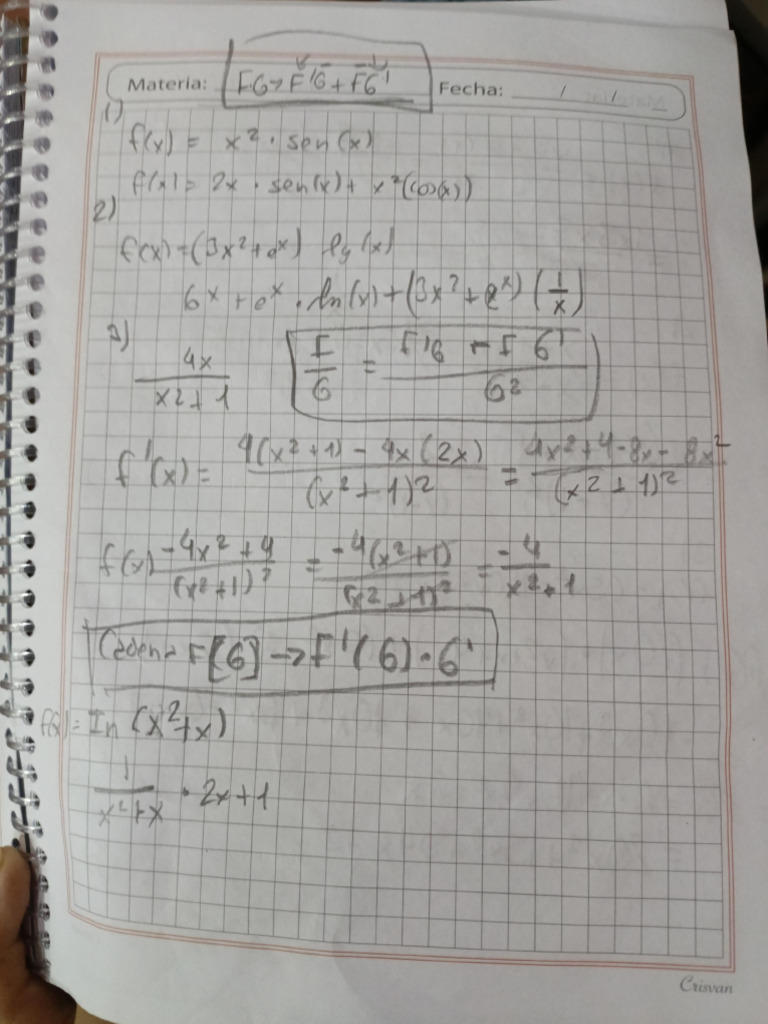 Materia: FG→F'G + FG' Fecha: / /
1)
f(x) = x² · sen(x)
f(x) = 2x · sen(x) + x²(cos(x))
2)
f(x) = (3x² + e^x) (x)
6^x + e^x · ln(x) + (3x² + e^x) (1/x)
4x / x² + 1 F/G = F'G - F G' / G²
f'(x) = 4(x²+1) - 4x(2x) / (x²+1)² = 4x² + 4 - 8x - 8x² / (x²+1)²
f(x) -4x² + 4 / (x²+1)² = -4(x²+1) / (x²+1)² = -4 / x²+1
Cadena F[G] → F'(G) · G'
f(x) = In (x²+x)
1 / x²+x · 2x+1
Crisvan